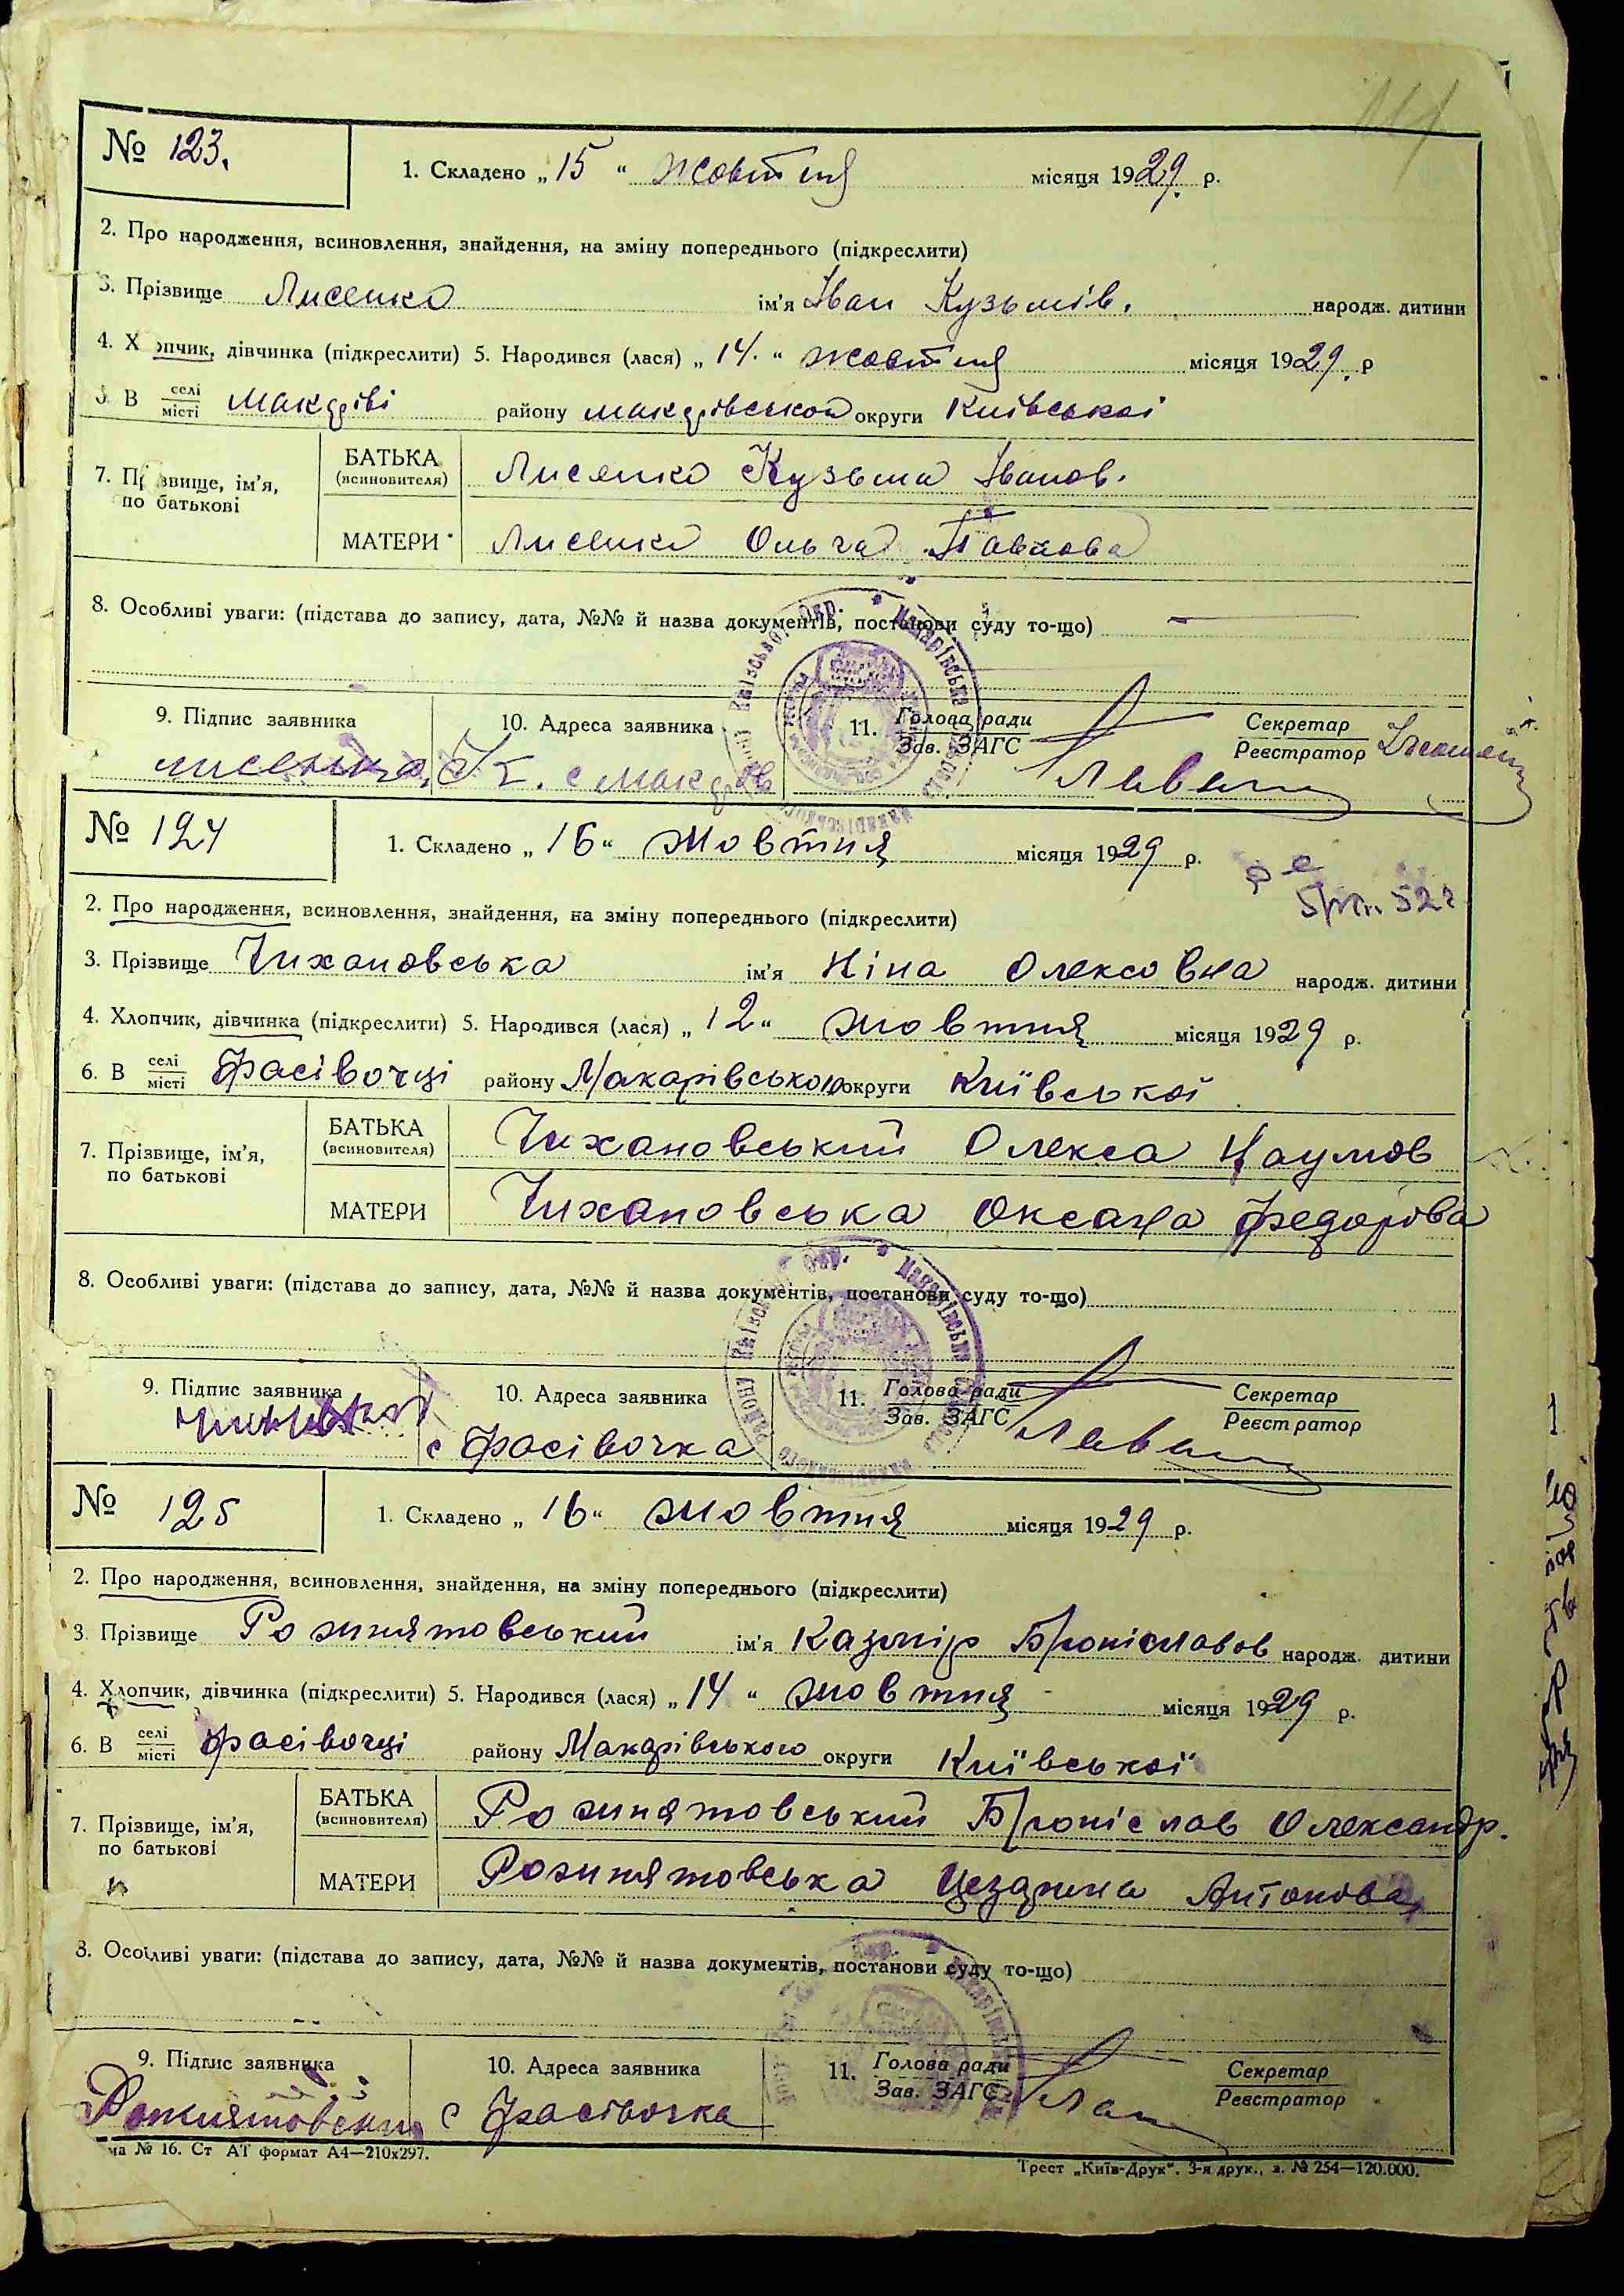 № 123.
1. Складено „15“ жовтня місяця 1929. р.
2. Про народження, всиновлення, знайдення, на зміну попереднього (підкреслити)
3. Прізвище Лисенко ім'я Іван Кузьмів. народж. дитини
4. Х опчик, дівчинка (підкреслити) 5. Народився (лася) „14.“ жовтня місяця 1929. р
В селі місті Макарові району Макарівського округи Київської
7. П звище, ім'я, по батькові
БАТЬКА (всиновителя) Лисенко Кузьма Іванов.
МАТЕРИ Лисенко Ольга Павлова
8. Особливі уваги: (підстава до запису, дата, №№ й назва документів, постанови суду то-що) —
9. Підпис заявника 10. Адреса заявника 11. Голова ради Зав. ЗАГС Секретар Реєстратор
Лисенко К. с Макарів
№ 124
1. Складено „16“ жовтня місяця 1929 р.
2. Про народження, всиновлення, знайдення, на зміну попереднього (підкреслити)
3. Прізвище Чихановська ім'я Ніна Олексовна народж. дитини
4. Хлопчик, дівчинка (підкреслити) 5. Народився (лася) „12“ жовтня місяця 1929 р.
6. В селі місті Фасівочці району Макарівського округи Київської
7. Прізвище, ім'я, по батькові
БАТЬКА (всиновителя) Чихановський Олекса Наумов
МАТЕРИ Чихановська Оксана Федорова
8. Особливі уваги: (підстава до запису, дата, №№ й назва документів, постанови суду то-що)
9. Підпис заявника 10. Адреса заявника 11. Голова ради Зав. ЗАГС Секретар Реєстратор
с Фасівочка
№ 125
1. Складено „16“ жовтня місяця 1929 р.
2. Про народження, всиновлення, знайдення, на зміну попереднього (підкреслити)
3. Прізвище Рожнятовський ім'я Казмір Броніславов народж. дитини
4. Хлопчик, дівчинка (підкреслити) 5. Народився (лася) „14“ жовтня місяця 1929 р.
6. В селі місті Фасівочці району Макарівського округи Київської
7. Прізвище, ім'я, по батькові
БАТЬКА (всиновителя) Рожнятовський Броніслав Олександр.
МАТЕРИ Рожнятовська Цезарина Антонова
8. Особливі уваги: (підстава до запису, дата, №№ й назва документів, постанови суду то-що)
9. Підпис заявника 10. Адреса заявника 11. Голова ради Зав. ЗАГС Секретар Реєстратор
с Фасівочка
ма № 16. Ст АТ формат А4—210х297.
Трест „Київ-Друк“. 3-я друк., з. № 254—120.000.